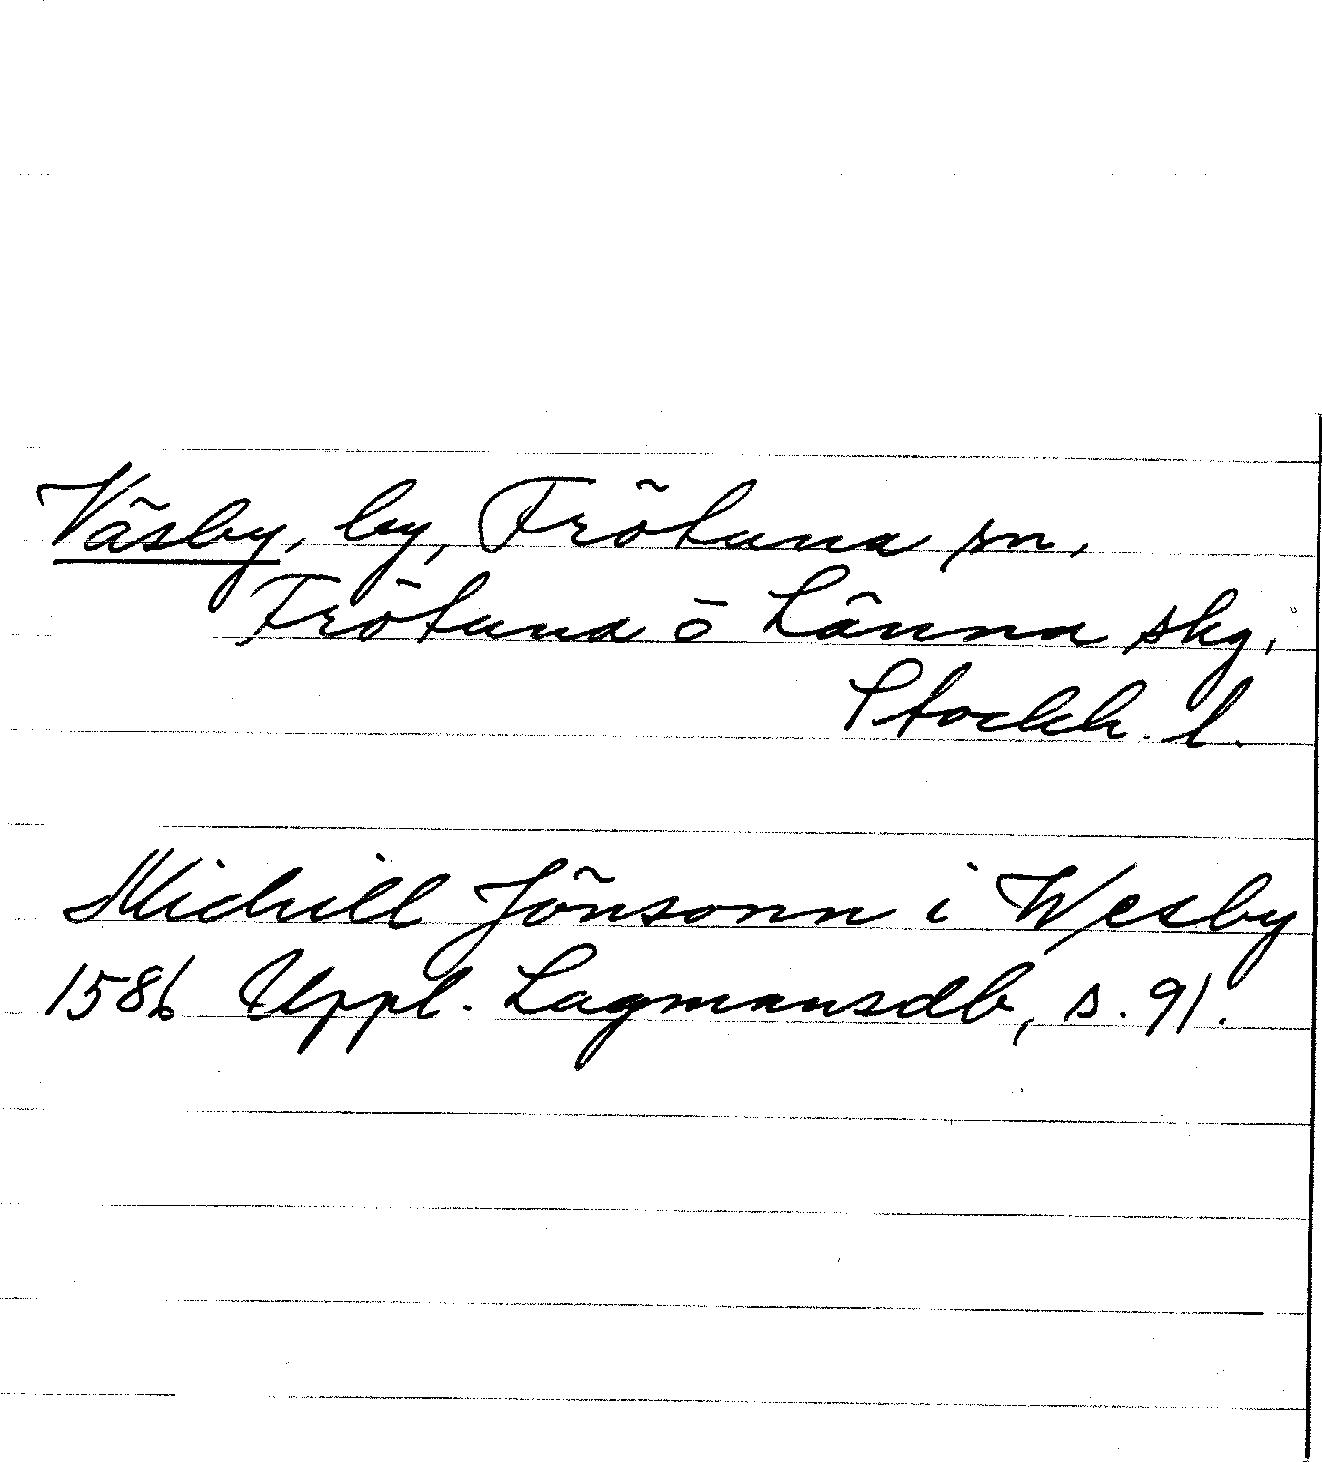 Väsby, by, Frötuna sn,
Frötuna o Länna skg,
Stockh. l.
Michill Jönsonn i Wesby
1586 Uppl. Lagmansdb, s. 91.